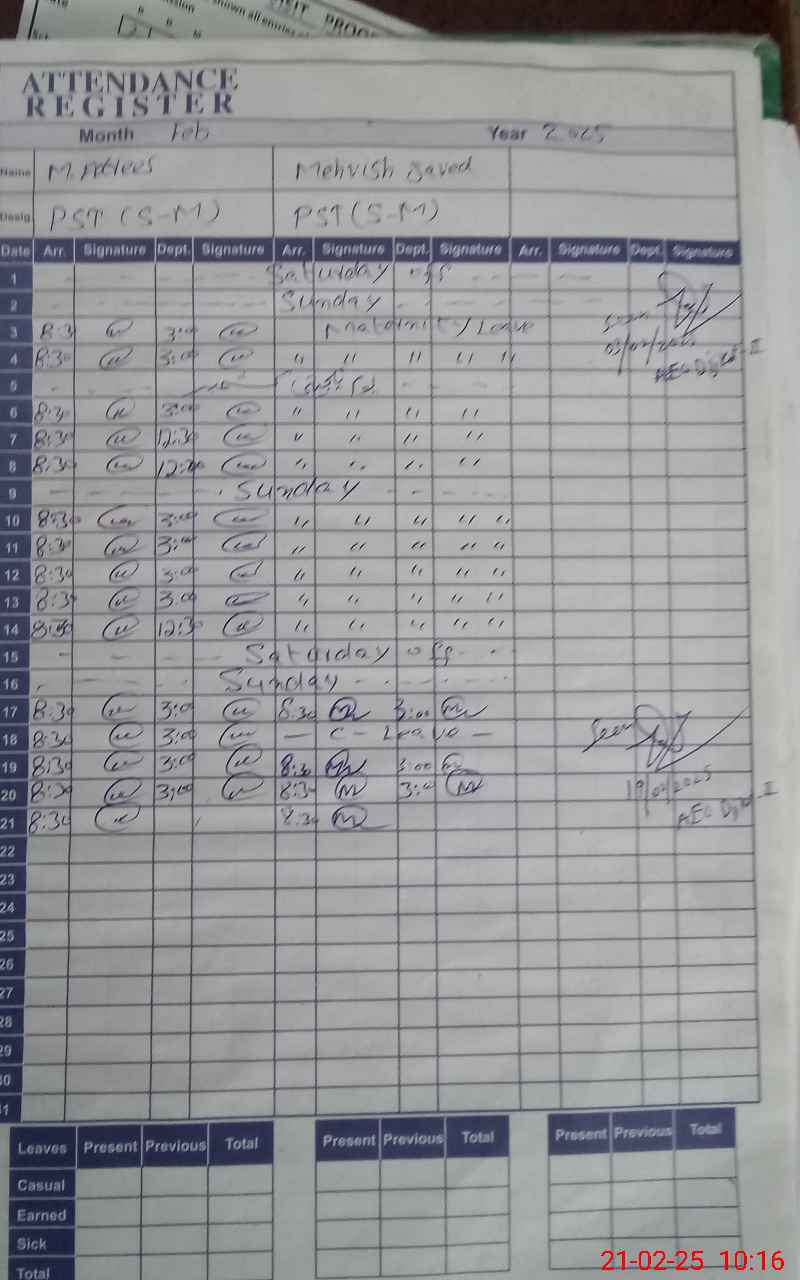 ATTENDANCE
REGISTER
Month Feb Year 2025
Name Mehvish Javed
Desig PST (S-M) PST (S-M)
Date Arr. Signature Dept. Signature Arr. Signature Dept. Signature Arr. Signature Dept. Signature
1 Saturday off
2 Sunday
3 8:30 3:00 Leave
03/02/2025
4 8:30 3:00 " " " " "
5
6 8:30 3:00 " " " "
7 8:30 12:30 " " " "
8 8:30 12:30 " " " "
9 Sunday
10 8:30 3:00 " " " " "
11 8:30 3:00 " " " " "
12 8:30 3:00 " " " " "
13 8:30 3:00 " " " " "
14 8:30 12:30 " " " " "
15 Saturday off
16 Sunday
17 8:30 3:00 8:30 3:00
18 8:30 3:00 - C - Leave - Seen
19 8:30 3:00 8:30 3:00
20 8:30 3:00 8:30 3:00 19/02/2025
21 8:30 8:30
22
23
24
25
26
27
28
29
30
31
Leaves Present Previous Total Present Previous Total Present Previous Total
Casual
Earned
Sick
Total
21-02-25 10:16